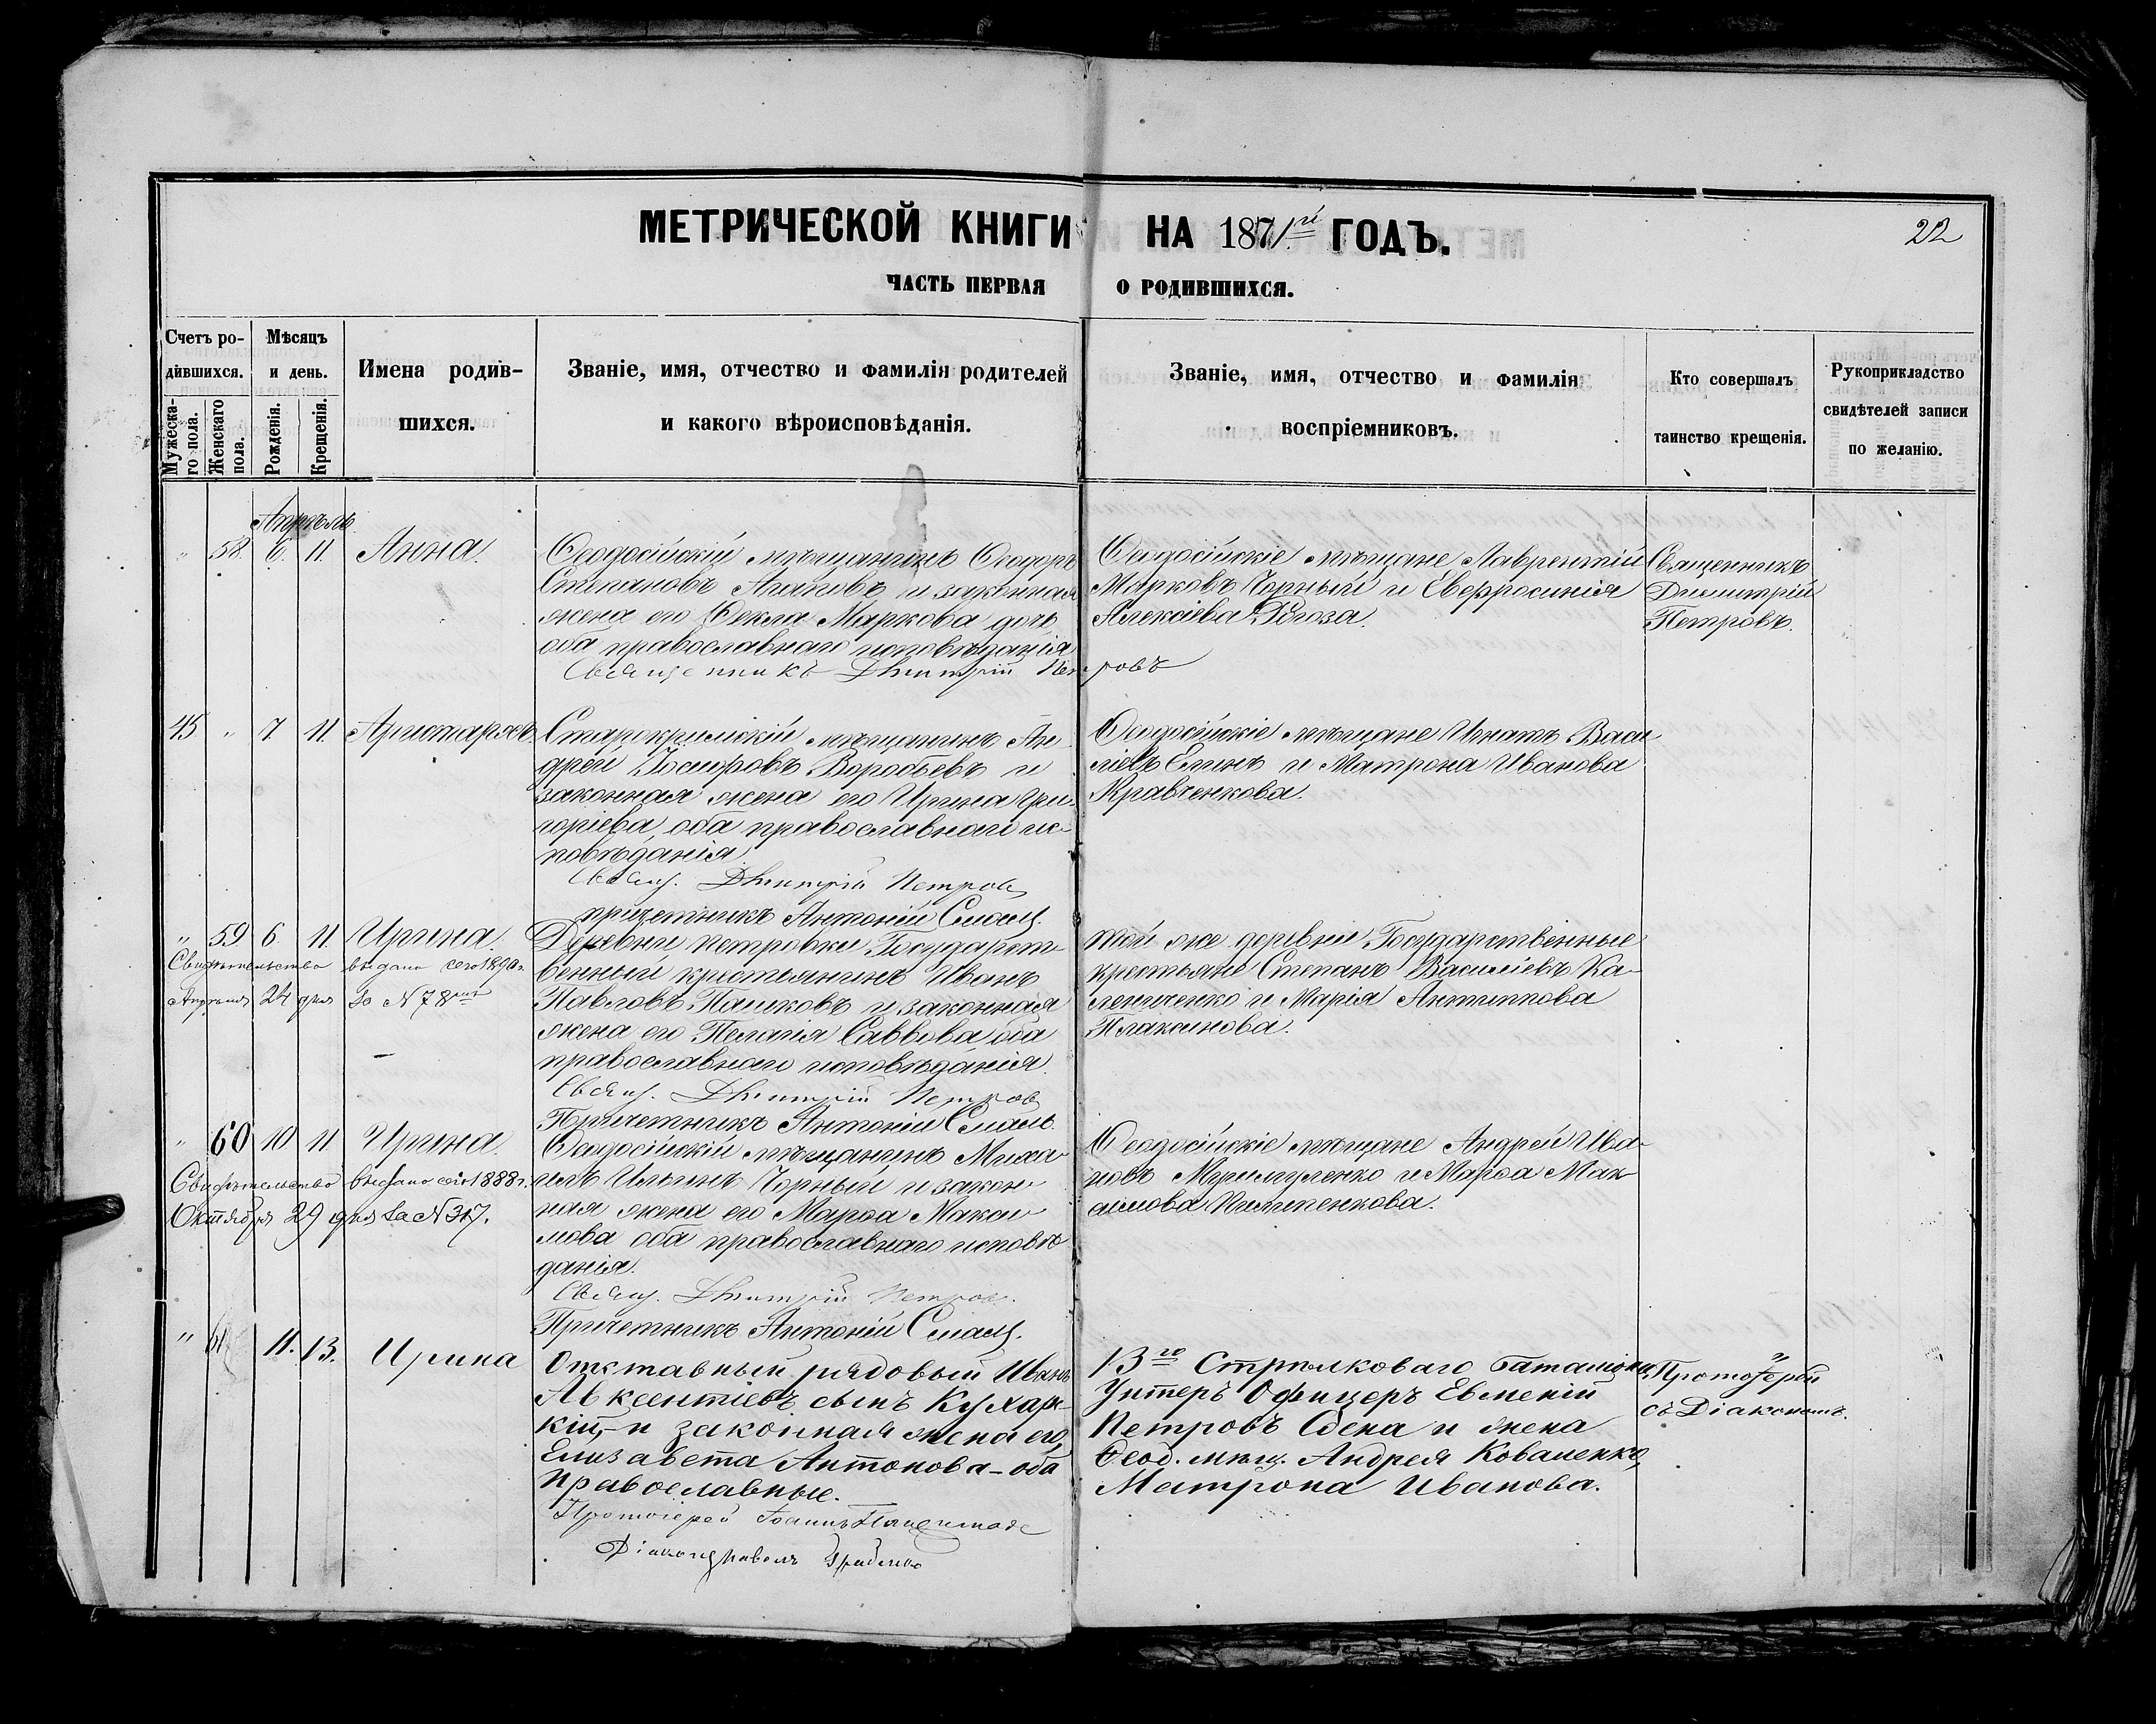 МЕТРИЧЕСКОЙ КНИГИ НА 1871й ГОДЪ.
22
ЧАСТЬ ПЕРВАЯ О РОДИВШИХСЯ.
Счетъ ро-
дившихся.
Мужеска-
го пола.
Женскаго
пола.
Мѣсяцъ
и день.
Рожденія.
Крещенія.
Имена родив-
шихся.
Званіе, имя, отчество и фамилія родителей
и какого вѣроисповѣданія.
Званіе, имя, отчество и фамилія
воспріемниковъ.
Кто совершалъ
таинство крещенія.
Рукоприкладство
свидѣтелей записи
по желанію.
Апрѣль
" 58. 6. 11. Анна.
Ѳеодосійскій мѣщанинъ Ѳеодоръ
Степановъ Агаповъ и законная
жена его Ѳекла Маркова дочь,
оба православнаго исповѣданія
Священникъ Дмитрій Петровъ
Ѳеодосійскіе мѣщане Лаврентій
Марковъ Чорный и Евфросинія
Алексіева Рогоза.
Священникъ
Димитрій
Петровъ.
45 " 7. 11. Аристархъ.
Старокрымскій мѣщанинъ Ан-
дрей Іосифовъ Воробьевъ и
законная жена его Ирина Гри-
горіева, оба православнаго ис-
повѣданія.
Свящ. Дмитрій Петровъ
причетникъ Антоній
Ѳеодосійскіе мѣщане Игнатъ Васи-
ліевъ Елинъ и Матрона Иванова
Кравченкова.
" 59 6 11. Ирина.
Свидѣтельство выдано сего 1890г.
Апрѣля 24 дня за N 78мъ
Деревни Петровки Государст-
венный крестьянинъ Иванъ
Павловъ Пашковъ и законная
жена его Пелагія Саввова оба
православнаго исповѣданія.
Свящ. Дмитрій Петровъ
Причетникъ Антоній
той же деревни Государственные
крестьяне Степанъ Василіевъ Ка-
лениченко и Марія Антиппова
Плаксинова.
" 60 10 11 Ирина.
Свидѣтельство выдано сего 1888г.
Октября 29 дня за N 317.
Ѳеодосійскій мѣщанинъ Миха-
илъ Ильинъ Чорный и закон-
ная жена его Марѳа Макси-
мова оба православнаго исповѣ-
данія.
Свящ. Дмитрій Петровъ.
Причетникъ Антоній
Ѳеодосійскіе мѣщане Андрей Ива-
новъ и Марѳа Мак-
симова Пилипенкова.
" 61 11. 13. Ирина
Отставный рядовый Иванъ
Авксентіевъ сынъ Кухар-
кій, и законная жена его,
Елизавета Антонова - оба
православные.
Протоіерей Іоаннъ
Діаконъ Павелъ
13го Стрѣлковаго баталіона,
Унтеръ Офицеръ Евменій
Петровъ и жена
Ѳеод. мѣщ. Андрея Коваленко,
Матрона Иванова.
Протоіерей
съ Діакономъ.